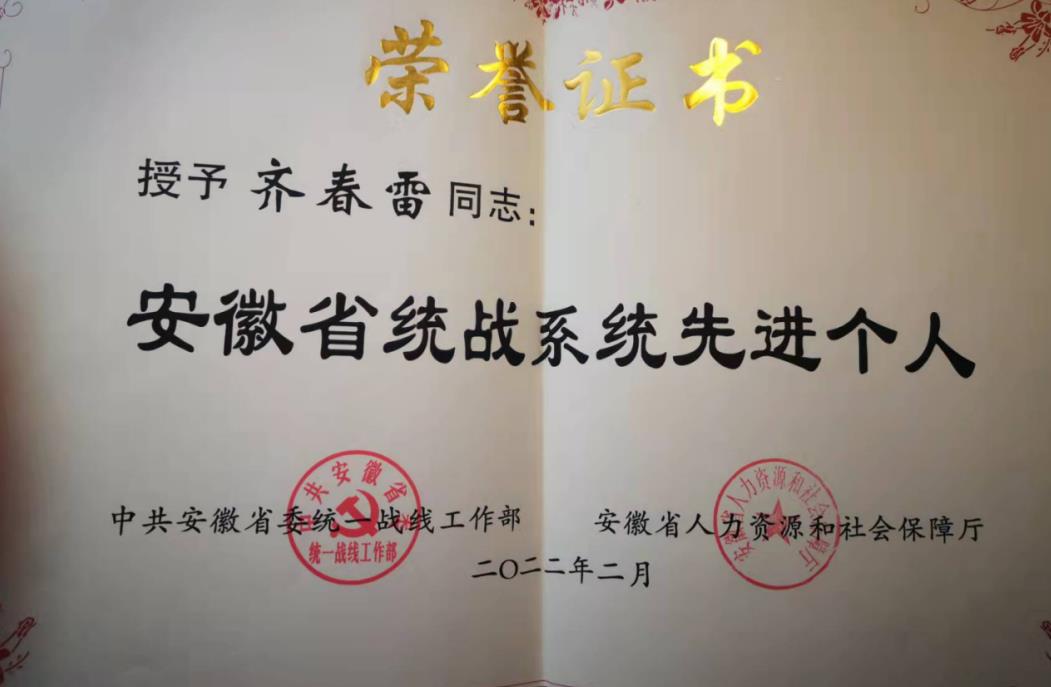 荣誉证书
授予 齐春雷 同志：
安徽省统战系统先进个人
中共安徽省委统一战线工作部 安徽省人力资源和社会保障厅
二〇二二年二月
中共安徽省委
统一战线工作部
安徽省人力资源和社会保障厅